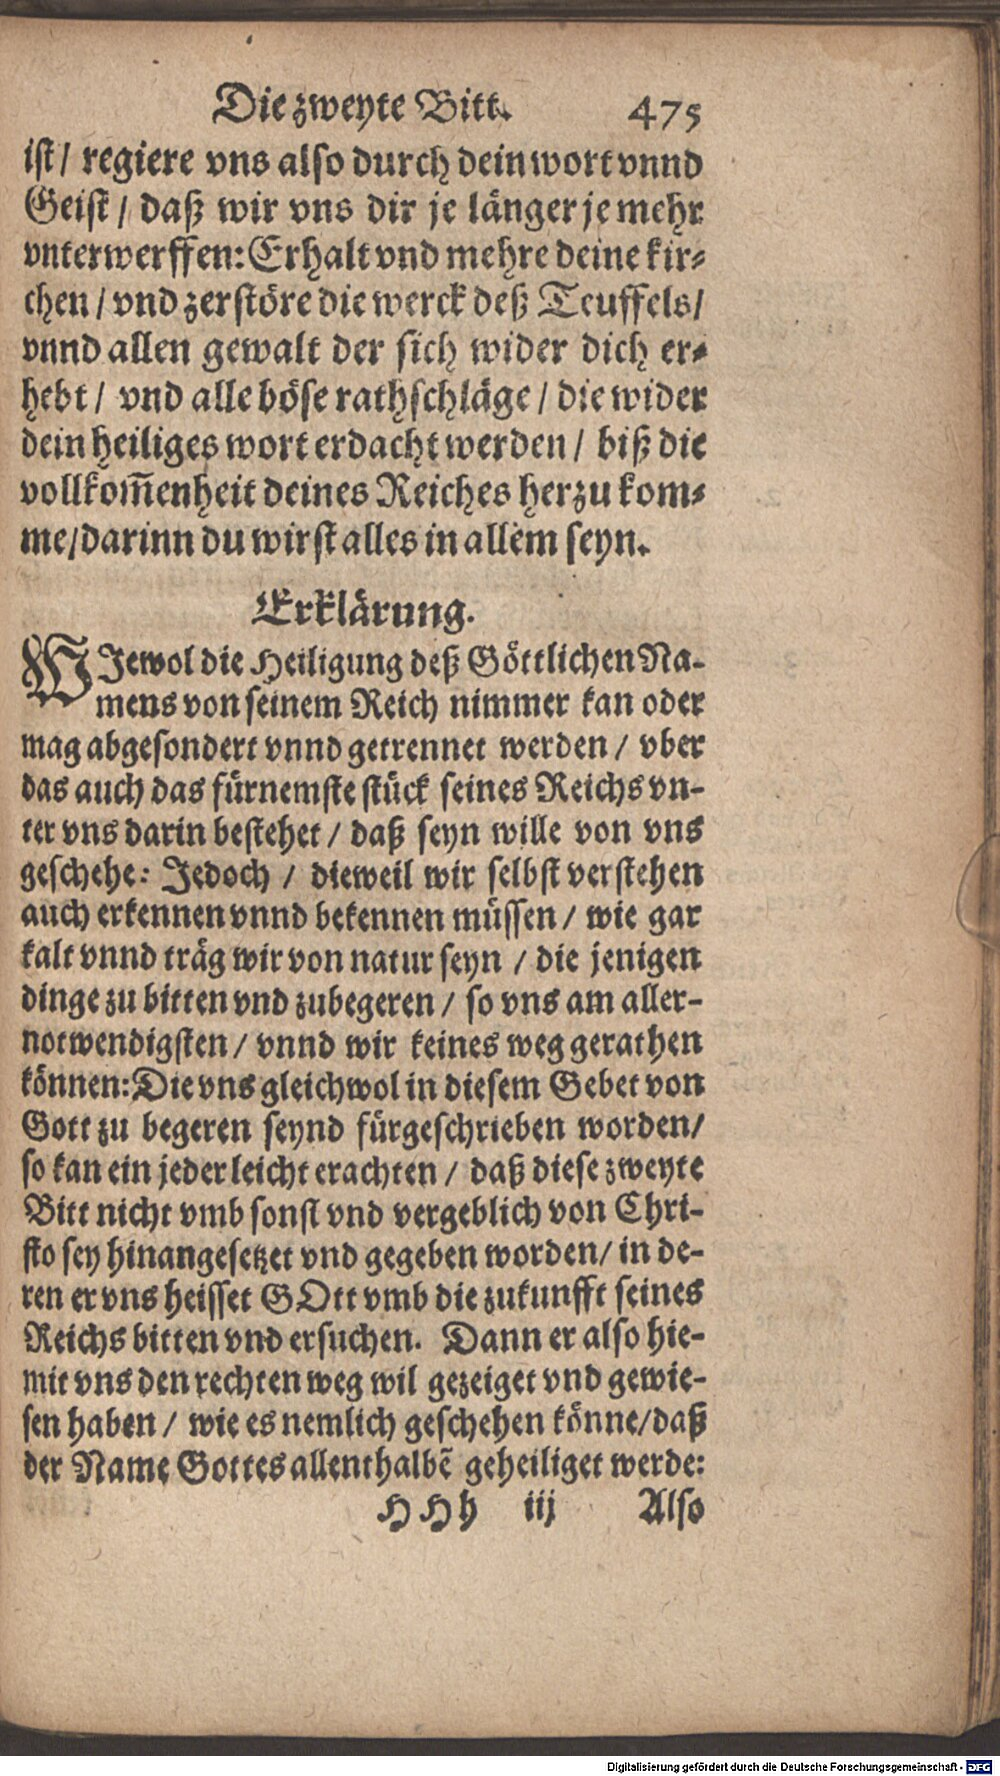 Die zweyte Bitt. 475
ist/ regiere vns also durch dein wort vnnd
Geist/ daß wir vns dir je länger je mehr
vnterwerffen: Erhalt vnd mehre deine kir-
chen/ vnd zerstöre die werck deß Teuffels/
vnnd allen gewalt der sich wider dich er-
hebt/ vnd alle böse rathschläge/ die wider
dein heiliges wort erdacht werden/ biß die
vollkom̃enheit deines Reiches herzu kom-
me/darinn du wirst alles in allem seyn.
Erklärung.
WJewol die Heiligung deß Göttlichen Na-
mens von seinem Reich nimmer kan oder
mag abgesondert vnnd getrennet werden/ vber
das auch das fürnemste stück seines Reichs vn-
ter vns darin bestehet/ daß seyn wille von vns
geschehe: Jedoch/ dieweil wir selbst verstehen
auch erkennen vnnd bekennen müssen/ wie gar
kalt vnnd träg wir von natur seyn/ die jenigen
dinge zu bitten vnd zubegeren/ so vns am aller-
notwendigsten/ vnnd wir keines weg gerathen
können: Die vns gleichwol in diesem Gebet von
Gott zu begeren seynd fürgeschrieben worden/
so kan ein jeder leicht erachten/ daß diese zweyte
Bitt nicht vmb sonst vnd vergeblich von Chri-
sto sey hinangesetzet vnd gegeben worden/ in de-
ren er vns heisset GOtt vmb die zukunfft seines
Reichs bitten vnd ersuchen. Dann er also hie-
mit vns den rechten weg wil gezeiget vnd gewie-
sen haben/ wie es nemlich geschehen könne/daß
der Name Gottes allenthalbẽ geheiliget werde:
HHh iij Also
Digitalisierung gefördert durch die Deutsche Forschungsgemeinschaft - DFG